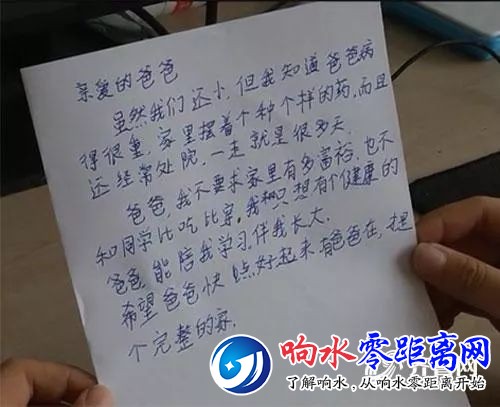 亲爱的爸爸
虽然我们还小,但我知道爸爸病
得很重,家里摆着个种个样的药,而且
还经常处院,一走就是很多天.
爸爸,我不要求家里有多富裕,也不
和同学比吃比穿.我只想有个健康的
爸爸,能陪我学习伴我长大.
希望爸爸快点好起来有爸爸在,是
个完整的家.
响水零距离网
了解响水,从响水零距离开始